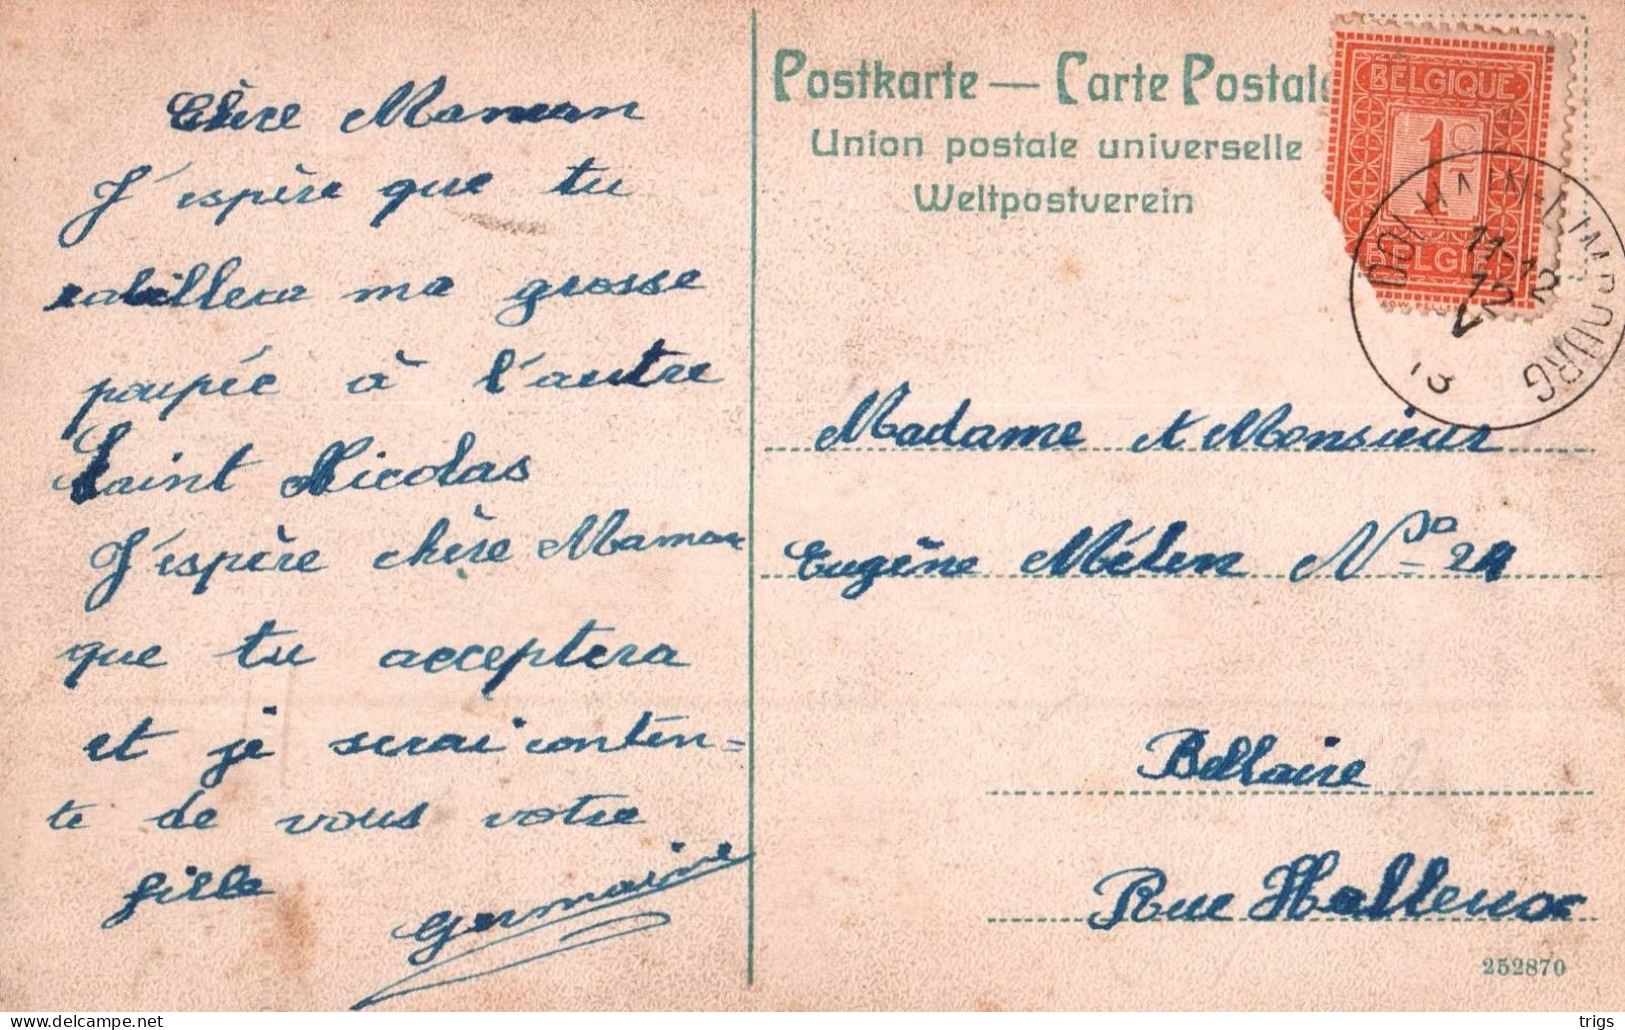 Chère Maman
J'espère que tu
rabillera ma grosse
poupée à l'autre
Saint Nicolas
J'espère chère Maman
que tu acceptera
et je serai conten=
te de vous votre
fille
Germaine
Postkarte — Carte Postale
Union postale universelle
Weltpostverein
BELGIQUE
1c
1c
BELGIË
DOLHAIN-LIMBOURG
11-12
12
V
13
Madame & Monsieur
Eugène Mélen No 24
Bellaire
Rue Halleux
252870
delcampe.net
trigs